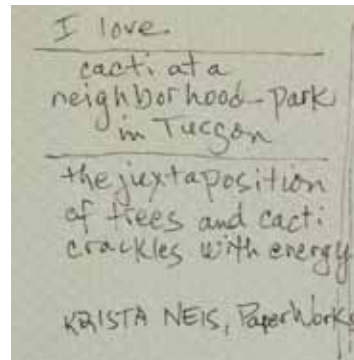 I love
cacti at a
neighborhood park
in Tucson
the juxtaposition
of trees and cacti
crackles with energy
KRISTA NEIS, PaperWorks